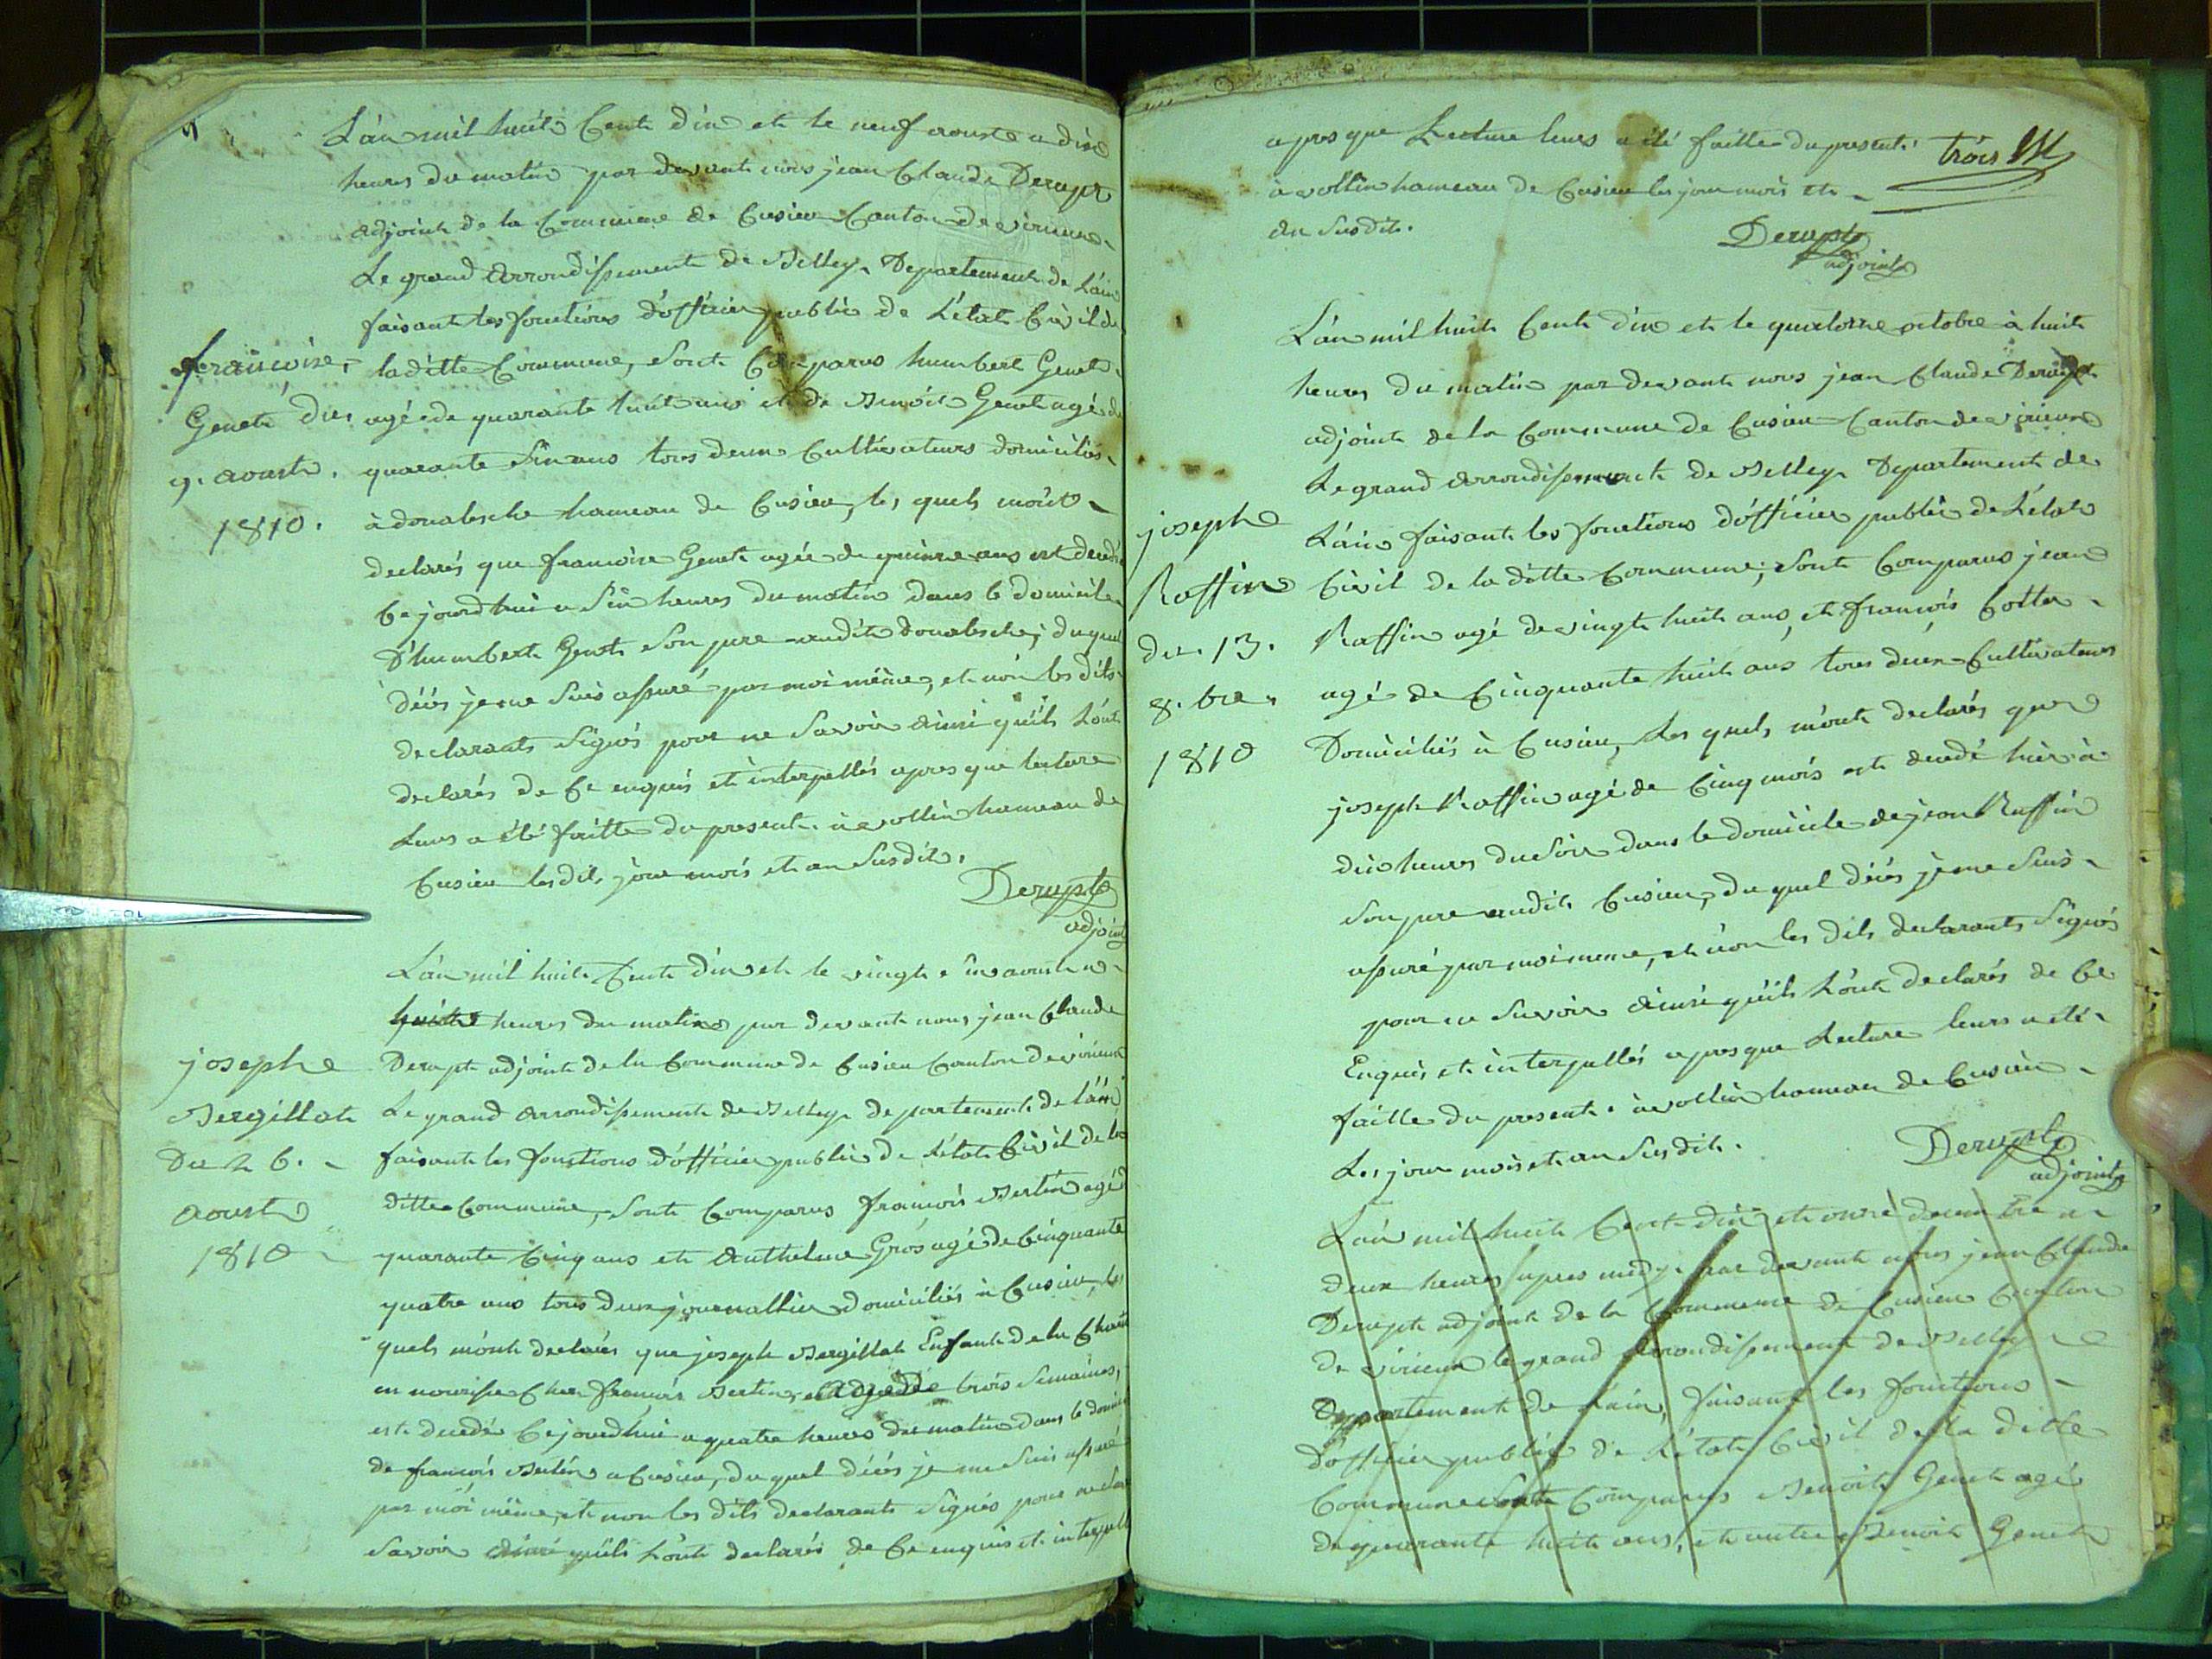 L'an mil huit Cent dix et le neuf aouste a dix
heures du matin par devant nous jean Claude Derupt
adjoint de la Commune de Cusieu Canton de virieux
Le grand Arrondissement de Belley, Departement de L'ain
faisant les fonctions d'officier public de L'état Civil de
laditte Commune, sont Comparus humbert Genet
agé de quarante huit ans et de Benoit Genet agé de
quarante six ans tous deux Cultivateurs domiciliés
à hameau de Cusieu, les quels m'ont
declarés que francoise Genet agée de quinze ans est decedé
Ce jourdhui a six heures du matin dans le domicile
D'humbert Genet son pere audit duquel
décés je me suis assuré par moi même, et n'on les dits
declarants signés pour ne savoir ainsi qu'ils l'ont
declarés de Ce enquis et interpellés apres que lecture
Leurs a été faitte du present. à vollin hameau de
Cusieu lesdit, jour mois et an susdits.
Derupt
adjoint
francoise
Genet du
9. aoust.
1810.
L'an mil huit Cent dix et le vingt six aoust a
huitt heures du matin par devant nous jean Claude
Derupt adjoint de la Commune de Cusieu Canton de virieux
Le grand Arrondissement de Belley departement de l'ain
faisant les fonctions d'officier public de l'état Civil de la
ditte Commune, sont Comparus francois Bertin agé
quarante Cinq ans et Anthelme Gros agé de Cinquante
quatre ans tous deux journallier domiciliés à Cusieu, les
quels m'ont declarés que joseph Bergillat Enfant de la
en nourisse Chez francois Bertin, Agé de trois semaines,
est decedé Ce jourdhui a quatre heures du matin dans le
de francois Bertin a Cusieu, du quel décés je me suis assuré
par moi même, et non les dits declarants signés pour ne
savoir ainsi qu'ils l'ont declarés de Ce enquis et interpellé
joseph
Bergillat
Du 26.
aoust
1810
apres que Lecture leurs a été faitte du present. trois
à vollin hameau de Cusieu les jour mois et
an susdits.
Derupt
adjoint
L'an mil huit Cent dix et le quatorze octobre à huit
heures du matin par devant nous jean Claude Derupt
adjoint de la Commune de Cusieu Canton de virieux
Le grand Arrondissement de Belley Departement de
L'ain faisant les fonctions d'officier public de L'état
Civil de la ditte Commune; sont Comparus jean
Raffin agé de vingt huit ans, et francois Cotter
agé de Cinquante huit ans tous deux Cultivateurs
Domiciliés à Cusieu, Les quels m'ont declarés que
joseph Raffin agé de Cinq mois est decedé hier à
dix heures du soir dans le domicile de jean Raffin
son pere audit Cusieu, du quel décés je me suis
assuré par moi meme, et n'on les dits declarants signés
pour ne savoir ainsi qu'ils l'ont declarés de Ce
Enquis et interpellés apres que Lecture leurs a été
faitte du present. à vollin hameau de Cusieu
Les jour mois et an susdits.
Derupt
adjoint
joseph
Raffin
du 13.
8. bre.
1810
L'an mil huit Cent dix et onze decembre a
deux heures apres midy par devant nous jean Claude
Derupt adjoint de la Commune de Cusieu Canton
de virieux le grand Arrondissement de Belley
Departement de L'ain, faisant les fonctions
d'officier public de L'état Civil de la ditte
Commune sont Comparus Benoit Genet agé
de quarante huit ans, et autre Benoit Genet